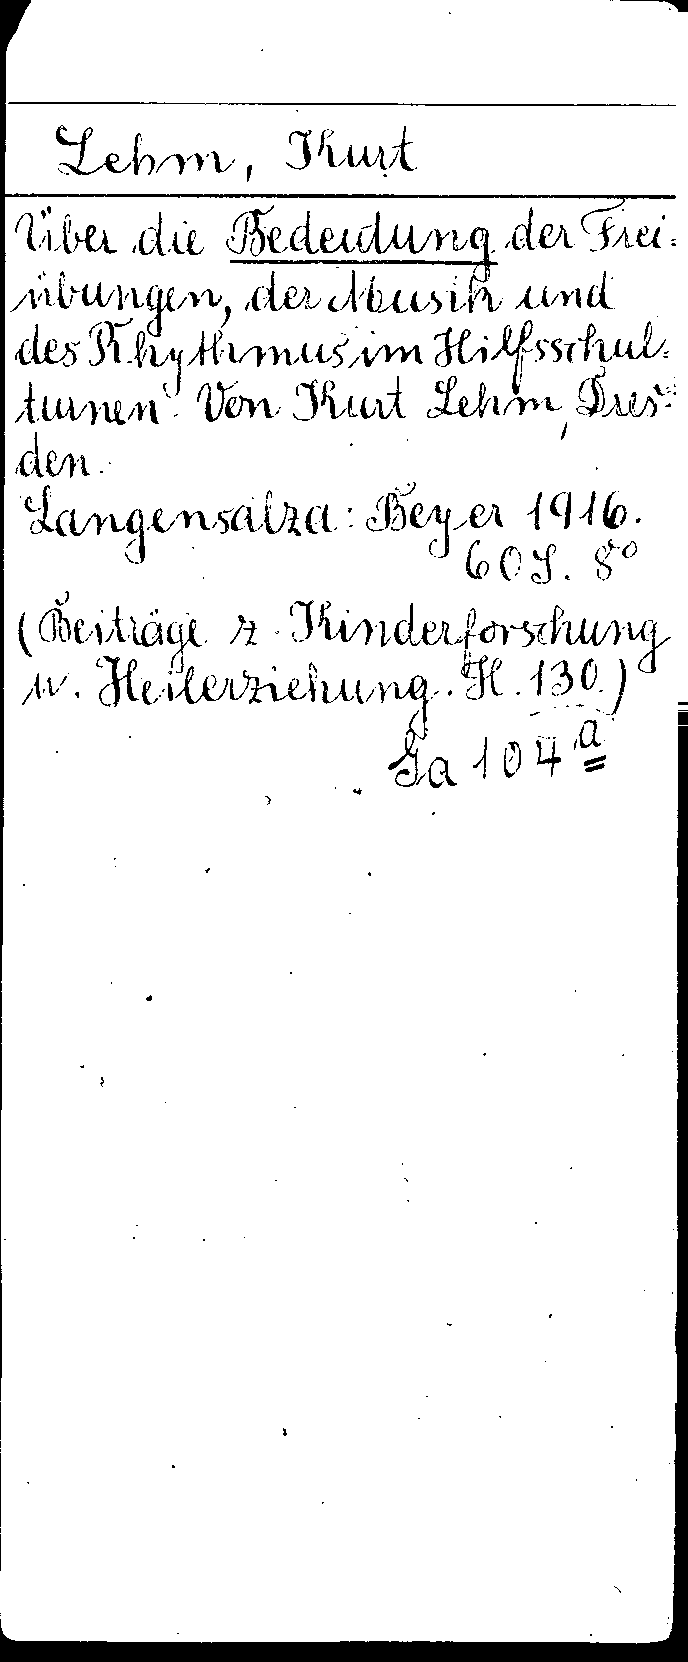 Lehm, Kurt
Über die Bedeutung der Frei-
übungen, der Musik und
des Rhythmus im Hilfsschul-
turnen. Von Kurt Lehm, Dres-
den.
Langensalza: Beyer 1916.
60 S. 8°
(Beiträge z. Kinderforschung
u. Heilerziehung. H. 130.)
Ga 104 a